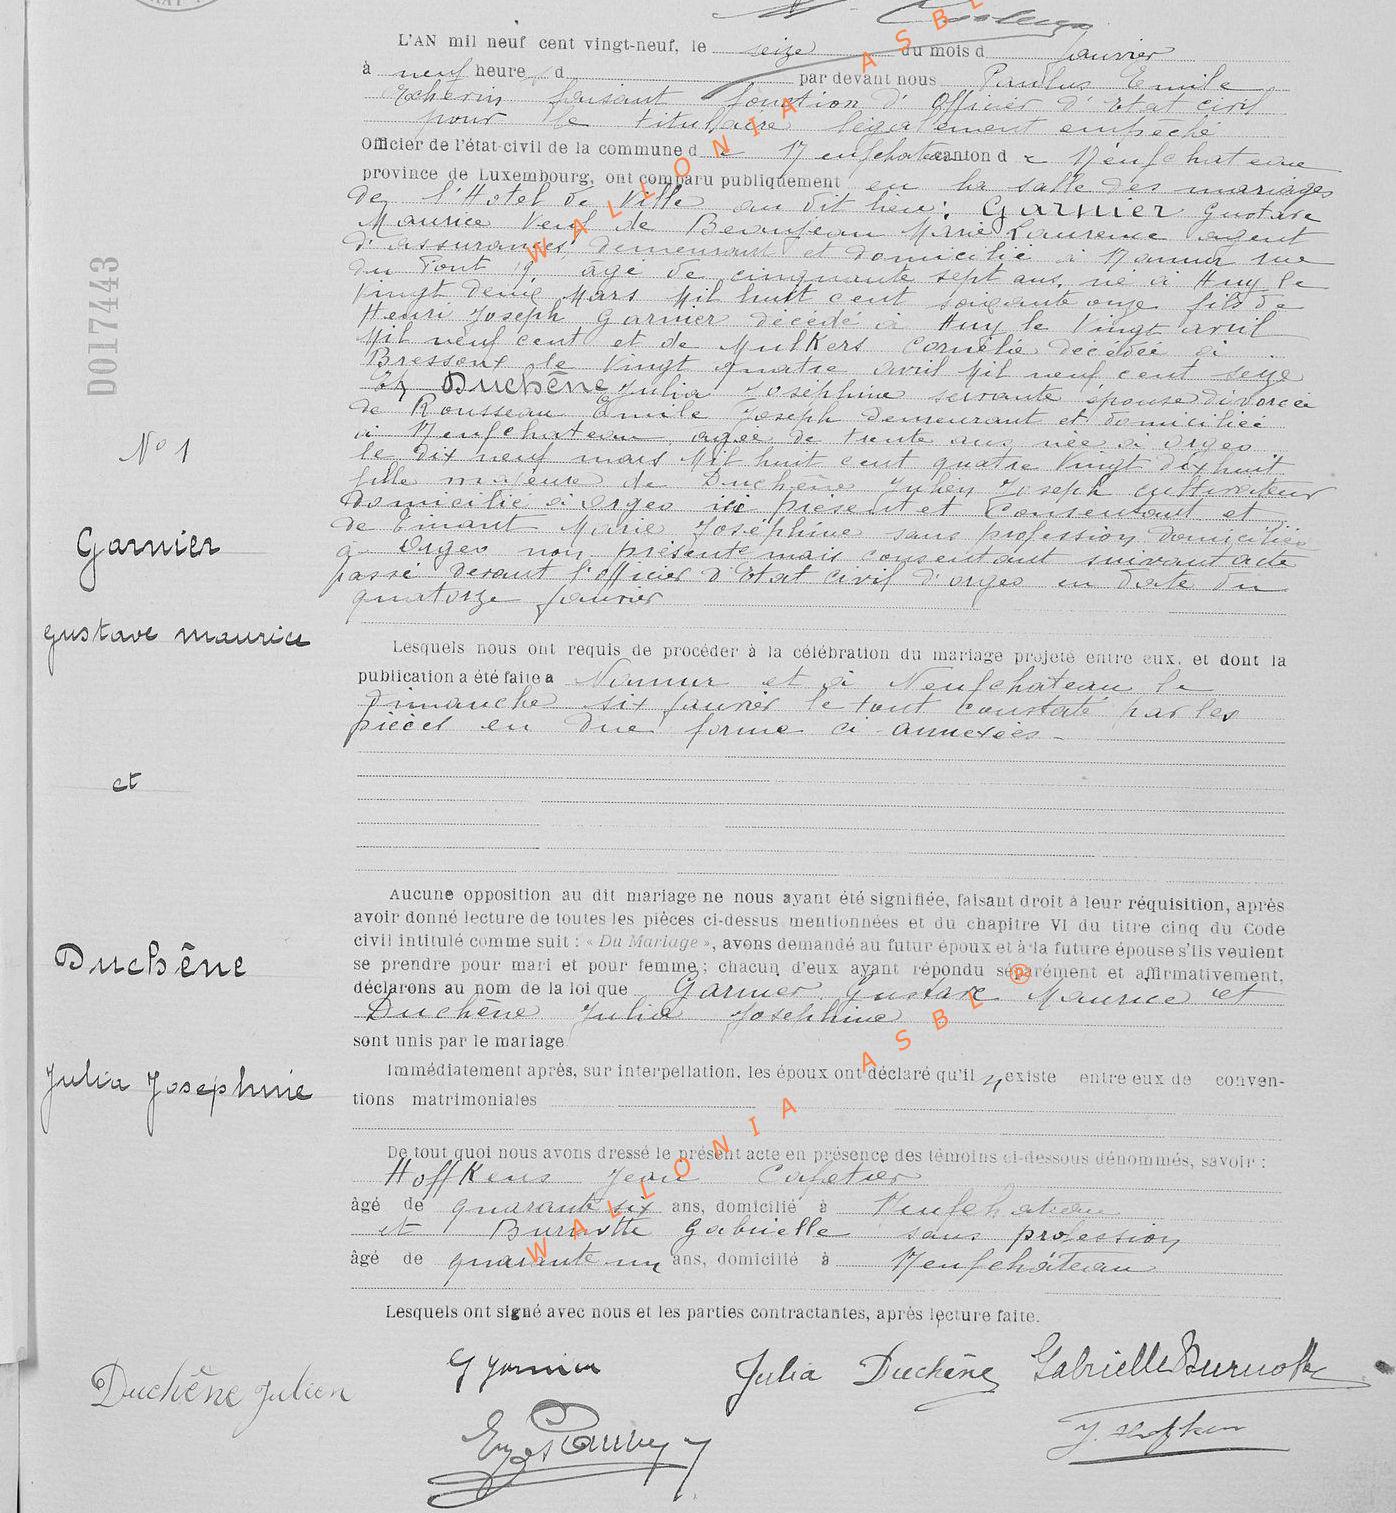 L'AN mil neuf cent vingt-neuf, le seize du mois d janvier
à neuf heure d par devant nous Paulus Emile
échevin faisant fonction d'officier d'Etat civil
pour le titulaire légalement empêché
Officier de l'état-civil de la commune d e Neufchateau canton d e Neufchateau
province de Luxembourg, ont comparu publiquement en la salle des mariages
de l'Hotel de Ville au dit lieu: Garnier Gustave
Maurice veuf de Beaujean Marie Laurence agent
d'assurances, demeurant et domicilié à Namur rue
du Pont 9, âgé de cinquante sept ans, né à Huy le
vingt deux Mars Mil huit cent soixante onze fils de
Henri Joseph Garnier décédé à Huy le vingt avril
Mil neuf cent et de Mulkers Cornélie décédée à
Bressoux le vingt quatre avril Mil neuf cent seize
Et Duchêne Julia Joséphine servante epouse divorcée
de Rousseau Emile Joseph demeurant et domiciliée
à Neufchateau, agée de trente ans née à Orgeo
le dix neuf mars Mil huit cent quatre vingt dix huit
fille majeure de Duchêne Julien Joseph cultivateur
domicilié à Orgeo ici présent et consentant et
de Marie Joséphine sans profession domiciliée
à Orgeo non présente mais consentant suivant acte
passé devant l'officier d'Etat civil d'Orgeo en date du
quatorze janvier
Lesquels nous ont requis de procéder à la célébration du mariage projeté entre eux, et dont la
publication a été faite a Namur et à Neufchateau le
Dimanche six janvier le tout constaté par les
pièces en due forme ci-annexées
Aucune opposition au dit mariage ne nous ayant été signifiée, faisant droit à leur réquisition, après
avoir donné lecture de toutes les pièces ci-dessus mentionnées et du chapitre VI du titre cinq du Code
civil intitulé comme suit : « Du Mariage », avons demandé au futur époux et à la future épouse s'ils veulent
se prendre pour mari et pour femme; chacun d'eux ayant répondu séparément et affirmativement,
déclarons au nom de la loi que Garnier Gustave Maurice et
Duchêne Julia Josephine
sont unis par le mariage
Immédiatement après, sur interpellation, les époux ont déclaré qu'il n'existe entre eux de conven-
tions matrimoniales
De tout quoi nous avons dressé le présent acte en présence des témoins ci-dessous dénommés, savoir :
Hoffkens Jean Cafetier
âgé de quarante six ans, domicilié à Neufchateau
et Burnotte Gabrielle sans profession
âgé de quarante un ans, domicilié à Neufchâteau
Lesquels ont signé avec nous et les parties contractantes, après lecture faite.
D017443
N° 1
Garnier
gustave maurice
et
Duchêne
Julia Josephine
Duchêne Julien
G Garnier
Julia Duchêne
Gabrielle Burnotte
WALLONIA ASBL
WALLONIA ASBL ®